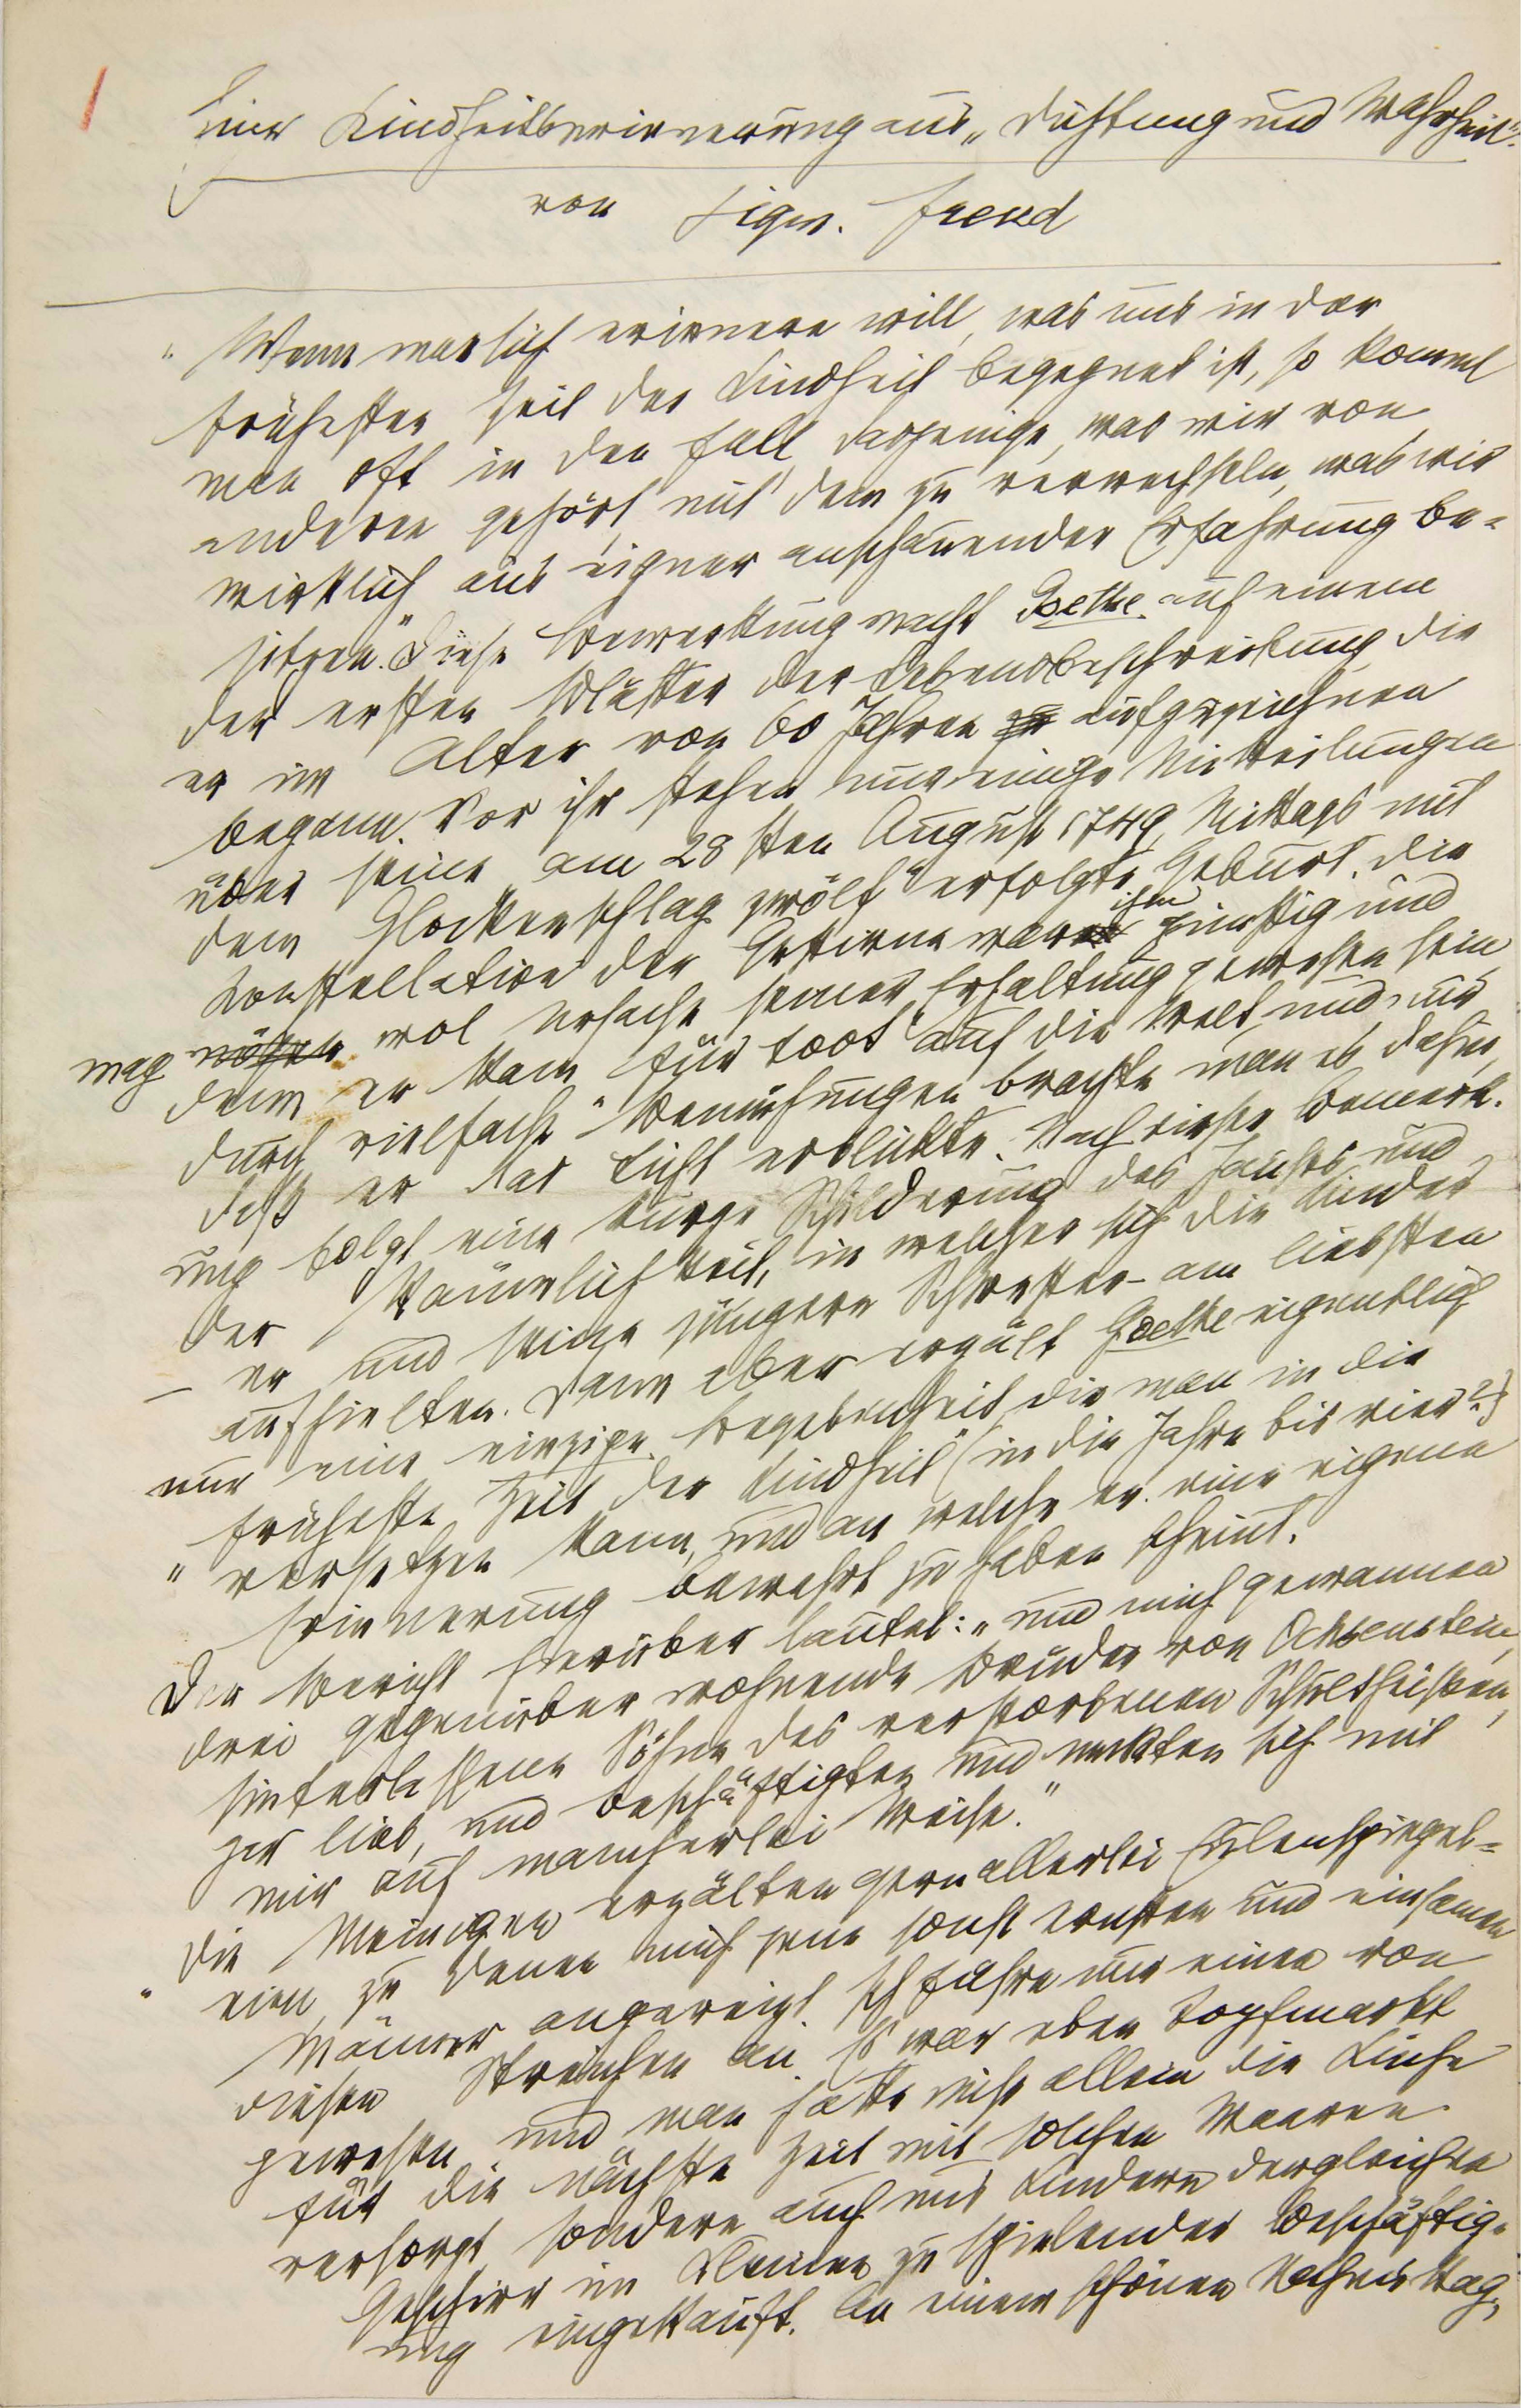 1
Eine Kindheitserinnerung aus „Dichtung und Wahrheit".
von Sigm. Freud
„Wenn man sich erinnern will, was uns in der
frühesten Zeit der Kindheit begegnet ist, so kommt
man oft in den Fall, dasjenige, was wir von
anderen gehört, mit dem zu verwechseln, was wir
wirklich aus eigner anschauender Erfahrung be-
sitzen." Diese Bemerkung macht Goethe auf einem
der ersten Blätter der Lebensbeschreibung, die
er im Alter von 60 Jahren zu aufzuzeichnen
begann. Vor ihr stehen nur einige Mitteilungen
über seine am 28sten August 1749, Mittags mit
dem Glockenschlag zwölf" erfolgte Geburt. Die
Konstellation der Gestirne war ihm günstig und
mag wol Ursache seiner Erhaltung gewesen sein,
denn er kam „für todt" auf die Welt, und nur
durch vielfache Bemühungen brachte man es dahin,
daß er das Licht erblickte. Nach dieser Bemerk-
ung folgt eine kurze Schilderung des Hauses und
der Räumlichkeit, in welcher sich die Kinder
– er und seine jüngere Schwester – am liebsten
aufhielten. Dann aber erzält Goethe eigentlich
nur eine einzige Begebenheit, die man in die
„früheste Zeit der Kindheit" (in die Jahre bis vier?)
versetzen kann, und an welche er eine eigene
Erinnerung bewahrt zu haben scheint.
Der Bericht hierüber lautet: „und mich gewannen
drei gegenüber wohnende Brüder von Ochsenstein,
hinterlassene Söhne des verstorbenen Schultheißen,
gar lieb, und beschäftigten und neckten sich mit
mir auf mancherlei Weise."
„Die Meinigen erzälten gern allerlei Eulenspiegel-
eien, zu denen mich jene sonst ernsten und einsamen
Männer angereizt. Ich führe nur einen von
diesen Streichen an. Es war eben Topfmarkt
gewesen und man hatte nicht allein die Küche
für die nächste Zeit mit solchen Waaren
versorgt, sondern auch uns Kindern dergleichen
Geschirr im Kleinen zu spielender Beschäftig-
ung eingekauft. An einem schönen Nachmittag,